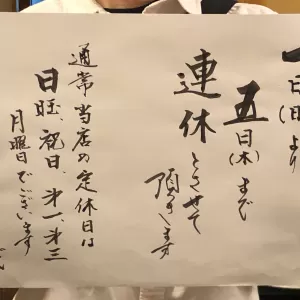 一日(日)より
五日(木)まで
連休とさせて
頂きます
通常当店の定休日は
日曜、祝日、第一、第三
月曜日でございます